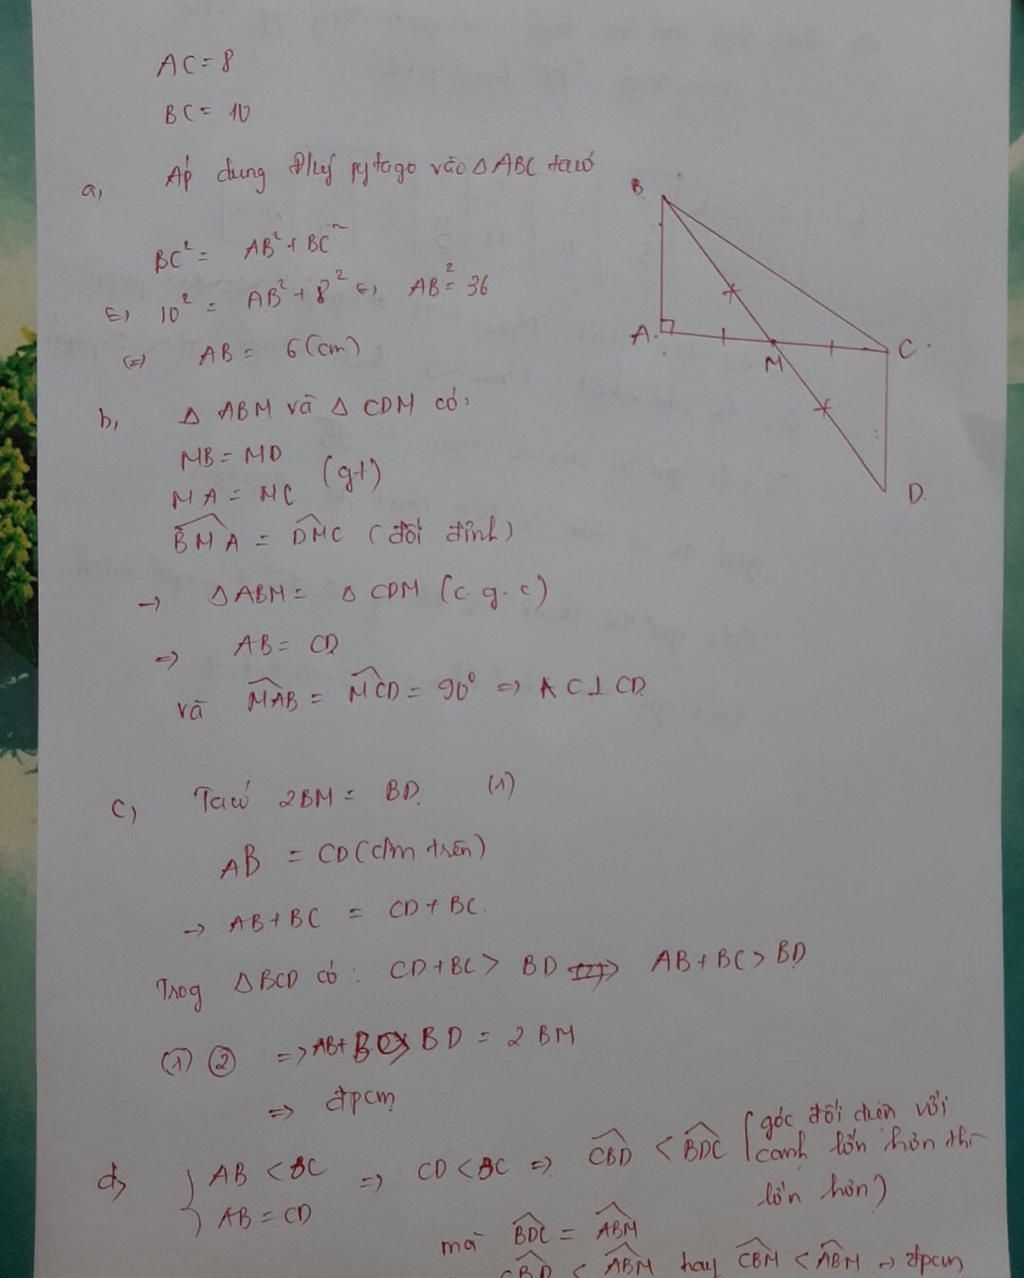 AC = 8
BC = 10
a, Áp dụng đ/lý pytago vào △ ABC ta có
BC² = AB² + BC²
⇔ 10² = AB² + 8² ⇔ AB² = 36
⇔ AB = 6 (cm)
b, △ ABM và △ CDM có:
MB = MD
MA = MC (gt)
BMA = DMC (đối đỉnh)
→ △ ABM = △ CDM (c.g.c)
⇒ AB = CD
và MAB = MCD = 90⁰ ⇒ AC ⊥ CD
c, Ta có 2BM = BD. (1)
AB = CD (cm trên)
→ AB + BC = CD + BC.
Trog △ BCD có: CD + BC > BD ⇒ AB + BC > BD
(1) (2) ⇒ AB + BC > BD = 2 BM
⇒ đpcm
d, { AB < BC ⇒ CD < BC ⇒ CBD < BDC (góc đối diện với
AB = CD cạnh lớn hơn thì
lớn hơn)
mà BDC = ABM
CBD < ABM hay CBM < ABM → đpcm
B
A
M
C
D